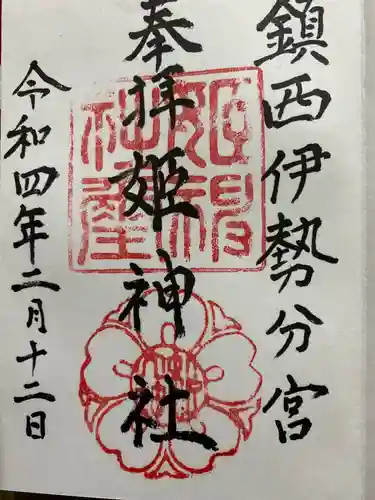 鎮西伊勢分宮
奉拝
姫神社
令和四年二月十二日